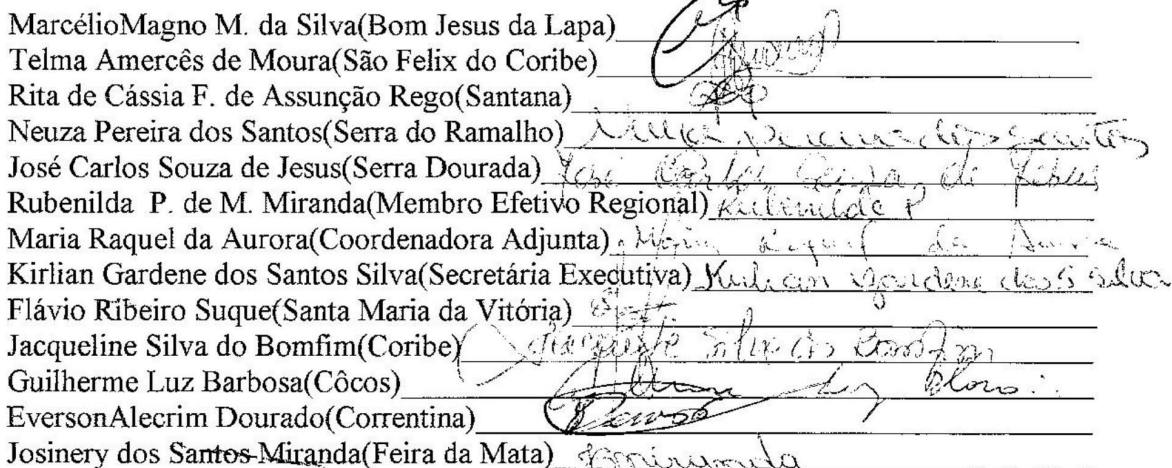 MarcélioMagno M. da Silva(Bom Jesus da Lapa)
Telma Amercês de Moura(São Felix do Coribe)
Rita de Cássia F. de Assunção Rego(Santana)
Neuza Pereira dos Santos(Serra do Ramalho) Neuza Pereira dos Santos
José Carlos Souza de Jesus(Serra Dourada) José Carlos Souza de Jesus
Rubenilda P. de M. Miranda(Membro Efetivo Regional) Rubenilda P
Maria Raquel da Aurora(Coordenadora Adjunta) Maria Raquel da Aurora
Kirlian Gardene dos Santos Silva(Secretária Executiva) Kirlian Gardene dos S Silva
Flávio Ribeiro Suque(Santa Maria da Vitória)
Jacqueline Silva do Bomfim(Coribe) Jacqueline Silva do Bomfim
Guilherme Luz Barbosa(Côcos)
EversonAlecrim Dourado(Correntina)
Josinery dos Santos Miranda(Feira da Mata)